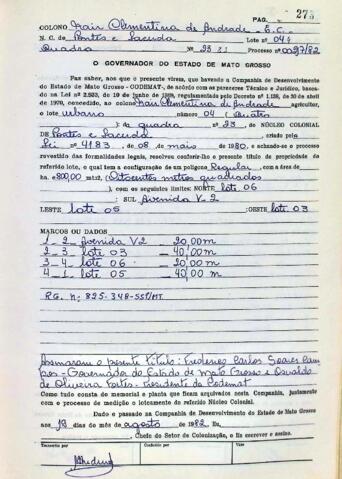 PAG. 275
COLONO Nair Clementina de Andrade - E.C.
N. C. de Pontes e Lacerda Lote nº 04
Quadra Nº 23 Processo nº 0097/82
O GOVERNADOR DO ESTADO DE MATO GROSSO
Faz saber, aos que o presente virem, que havendo a Companhia de Desenvolvimento
do Estado de Mato Grosso - CODEMAT-, de acôrdo com os pareceres Técnico e Jurídico, baseado
na Lei nº 2.923, de 19 de junho de 1969, regulamentada pelo Decreto nº 1.138, de 30 de abril
de 1970, concedido, ao colono Nair Clementina de Andrade agricultor,
o lote urbano número 04 (Quatro
) da quadra nº 23, do NÚCLEO COLONIAL
de Pontes e Lacerda criado pela
Lei nº 4183 de 08 de maio de 1980, e achando-se o processo
revestido das formalidades legais, resolveu conferir-lhe o presente título de propriedade do
referido lote, o qual tem a configuração de um polígono Regular, com a área de
ha 800,00 mt2, (Oitocentos metros quadrados
), com os seguintes limites: NORTE lote 06
: SUL Avenida V-2
LESTE lote 05 :OESTE lote 03
MARCOS OU DADOS
1 - 2 Avenida V2 - 20,00 m
2 - 3 lote 03 - 40,00 m
3 - 4 lote 06 - 20,00 m
4 - 1 lote 05 - 40,00 m
R.G. nº: 825-348-SSP/MT.
Assinaram o presente título: Frederico Carlos Soares Cam
pos - Governador do Estado de Mato Grosso e Osvaldo
de Oliveira Fortes - Presidente da Codemat
Como tudo consta do memorial e planta que ficam arquivados nesta Companhia, juntamente
com o processo de medição e loteamento do referido Núcleo Colonial.
Dado e passado na Companhia de Desenvolvimento do Estado de Mato Grosso
aos 13 dias do mês de agosto de 1982 Eu,
Chefe do Setor de Colonização, o fiz escrever e assino.
Transcrito por Conferido Visto